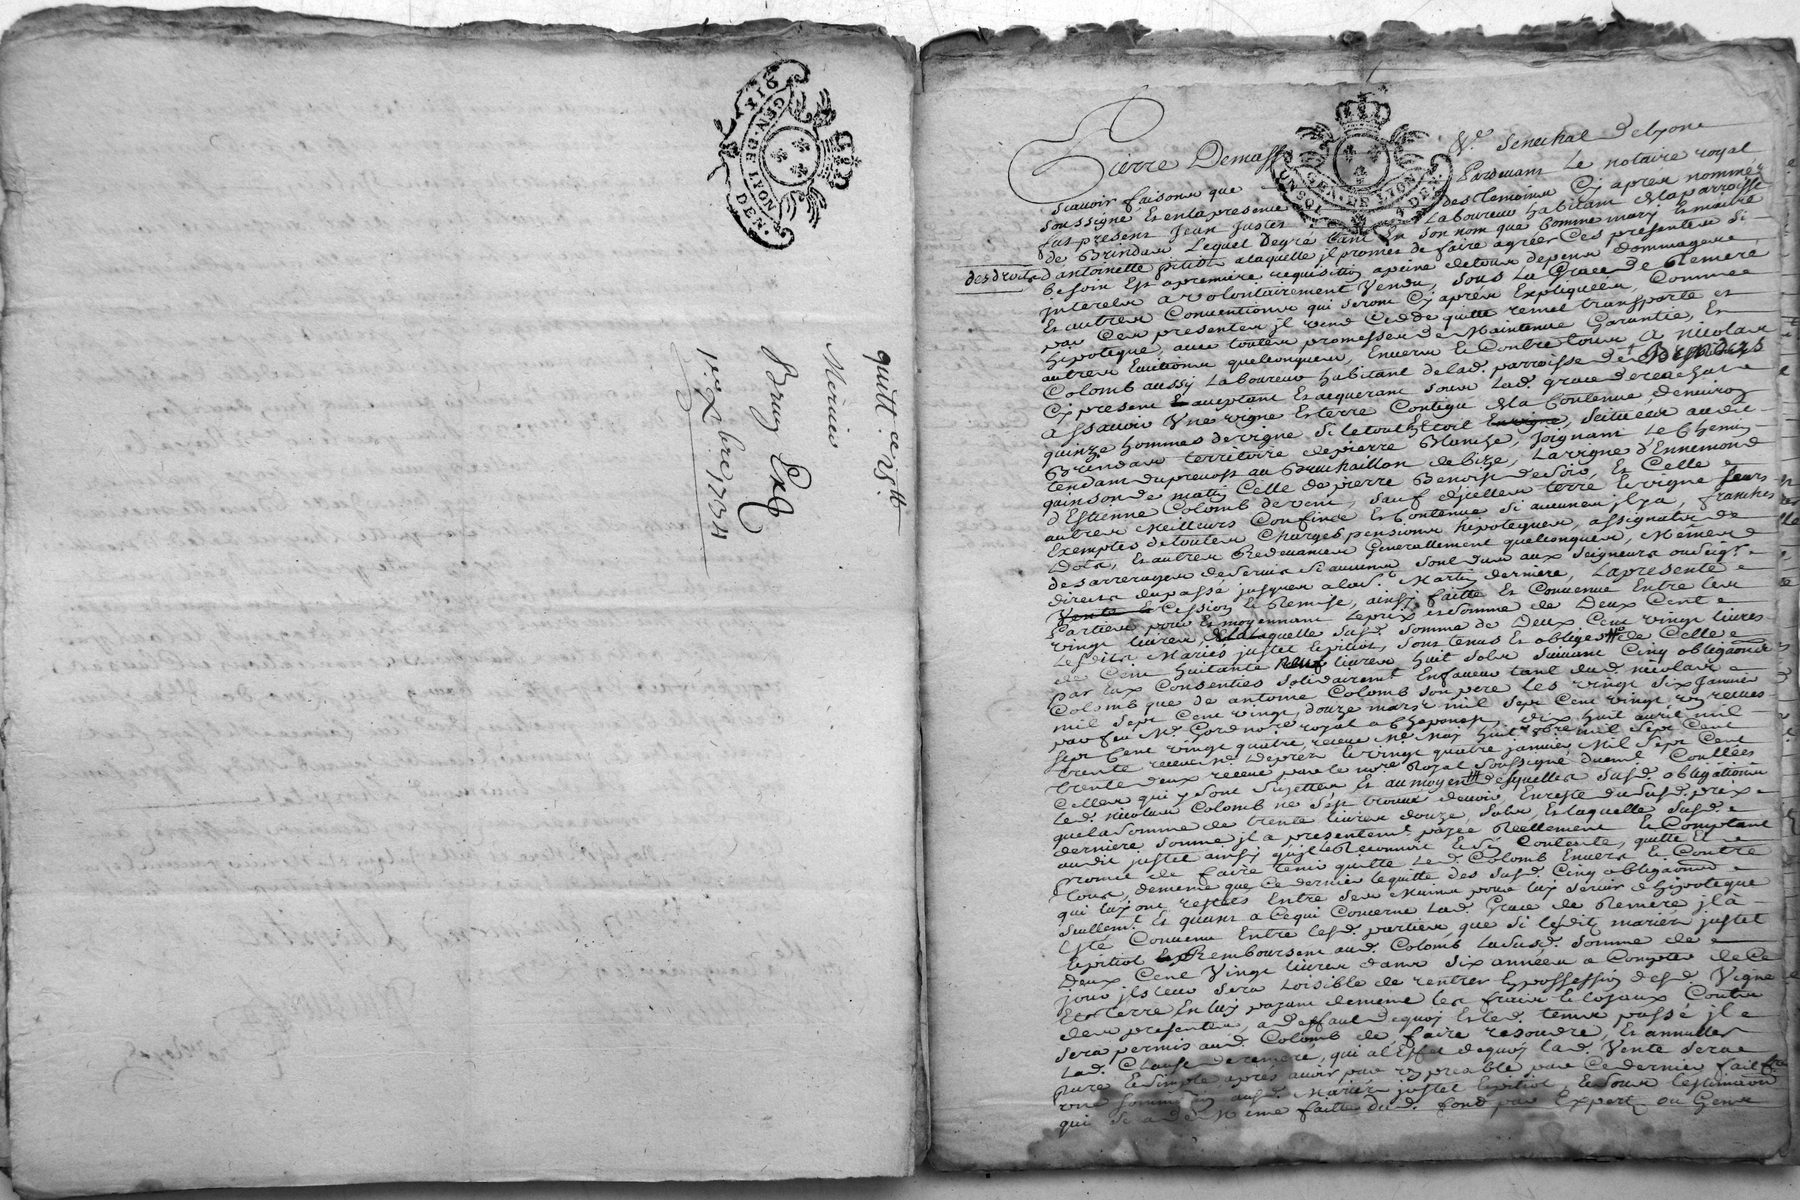 SIX
GEN·DE LYON
DEN·
quitt.ce 25tt
Meriier
Bruy
1er Xbre 1734
UN SOL
GEN·DE LYON
4 DEN
Pierre Demass Sénéchal de Lyon
Scavoir faisons que Pardevant Le notaire royal
soussigné Et en la presence des temoins Cy apres nommés
fut present Jean Justet Laboureur habitant de la parroisse
de Brindas Lequel de gré tant en son nom que Comme mary Et maitre
des droits d'antoinette pitiot a laquelle il promet de faire agréer Ces presentes si
besoin Est a premiere requisition a peine de tous depens dommages
interets a volontairement Vendu, sous La Grace de Remeré
Et autres Conventions qui seront Cy apres Expliquées, Comme
par Ces presentes il vend Cedde quitte remet transporte Et
hipoteque, avec toutes promesses de Maintenue Garantie, Et
autres Evictions quelconques, Envers Et Contre tous, A Nicolas
Colomb aussy Laboureur habitant de lad. parroisse de Brindas
Cy present acceptant Et acquerant sous Lad. grace de rachat
a sçavoir Une vigne Et terre Contigu de la Contenue d'environ
quinze hommes de vigne si le tout Etoit En vigne, scituées audit
Brindas territoire de pierre Blanche, joignant Le Chemin
tendant du au Bruchaillon de bize, La vigne d'Ennemond
quinson de matin Celle de pierre Benoist de soir, Et Celle
d'Estienne Colomb de vent, sauf d'jcelles terre Et vigne leurs
autres Meilleurs Confins Et Contenue si aucunes jl y a, franches
Exemptes de toutes Charges pensions hipoteques, assignats de
Dots, Et autres Redevances Generallement quelconques, Memes
des arrerages de servis si aucuns sont dus aux seigneurs ou seigr.
directs du passé jusques a la St. Martin derniere, La presente
Vente Cession Et Remise, ainsy faitte Et Convenue Entre les
Parties pour Et moyennant le prix Et somme de Deux Cent
vingt livres de laquelle susd. somme de Deux Cent vingt livres
Lesdits Mariés justet Et pitiot, sont tenus Et obligés de Celle
de Cent huitante neuf livres huit sols suivant Cinq obligations
par Eux Consenties solidairemt. En faveur tant dud. nicolas
Colomb que de antoine Colomb son pere Les vingt six janvier
mil sept Cent vingt, douze mars mil sept Cent vingt un recues
par feu Me. Gord nore. royal a Chaponost, dix huit avril mil
sept Cent vingt quatre, recue Me. huit 9bre mil sept Cent
trente recue Me. Et vingt quatre janvier Mil sept Cent
trente deux recue par le nore. Royal soussigné duemt. Conllées
Celles qui y sont sujettes, Et au moyen desquelles susd. obligations
Le d. nicolas Colomb ne s'est trouvé devoir En reste du susd. prix
que la somme de trente livres douze sols, Et laquelle susd.
derniere somme jl a presentemt. payée Réellement Et Comptant
audit justet ainsy qu'jl le Reconnoit Et s'en Contente, quitte Et
promet de faire tenir quitte Led. Colomb Envers Et Contre
tous, de meme que Ce dernier le quitte des susd. Cinq obligations
qui luy ont restées Entre ses Mains pour luy servir d'hipoteque
seullemt. Et quant a Ce qui Concerne Lad. Grace de Remeré jl a
Eté Convenu Entre lesd. parties que si lesdits mariés justet
Et pitiot Remboursent aud. Colomb La susd. somme de
Deux Cent Vingt livres dans six années a Compter de Ce
jour jls leur sera loisible de rentrer En possession desd. Vigne
Et terre En luy payant de meme les fraix Et loyaux Couts
des presentes, a deffaut de quoy Et led. tems passé jl
sera permis aud. Colomb de faire resoudre, Et annuller
Lad. Clause de remeré, qui a l'Effet de quoy lad. Vente sera
pure Et simple apres avoir par par Ce dernier fait
une sommation ausd. Mariés justet Et pitiot, Et sous l'estimation
qui sera de Meme faitte dud. fond par Expert ou Gens